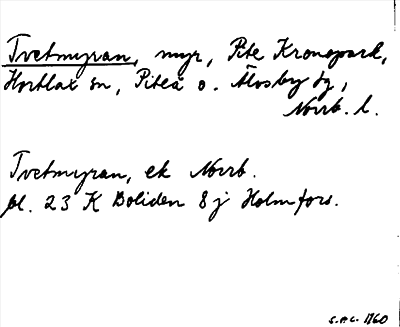 Tvetmyran, myr, Pite Kronopark,
Hortlax sn, Piteå o. Älvsby tg,
Norrb. l.
Tvetmyran, ek Norrb.
bl. 23 K Boliden 8j Holmfors.
S.A.C. 1960